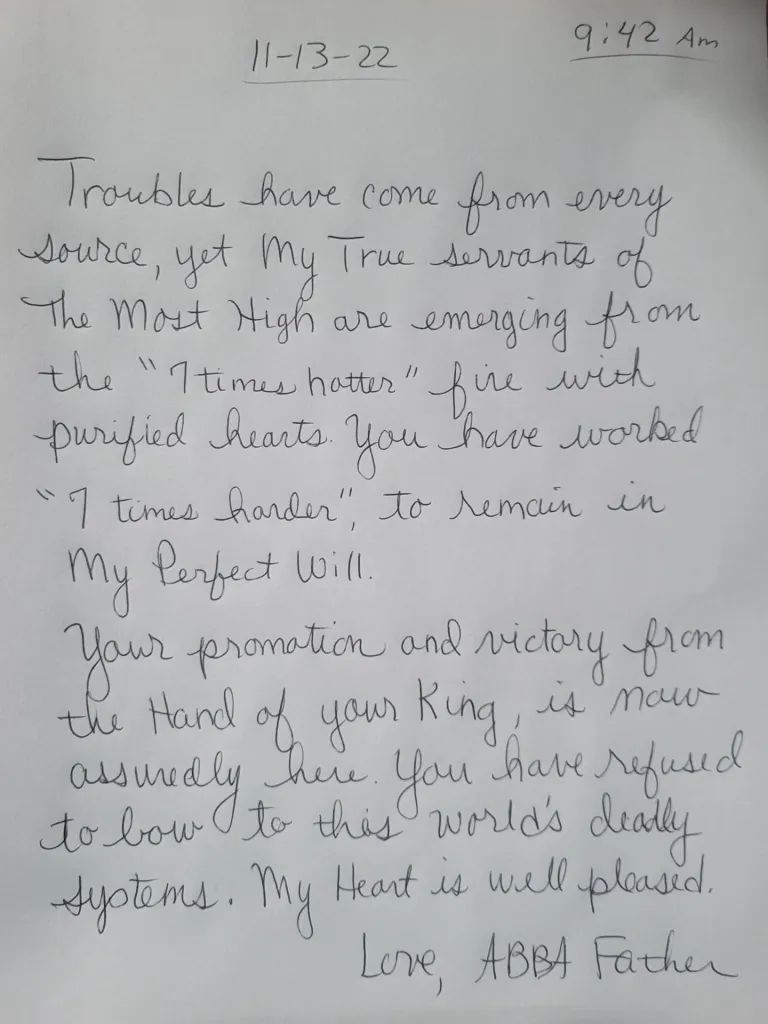 11-13-22
9:42 Am
Troubles have come from every
source, yet My True servants of
The Most High are emerging from
the "7 times hotter" fire with
purified hearts. You have worked
"7 times harder", to remain in
My Perfect Will.
Your promotion and victory from
the Hand of your King, is now
assuredly here. You have refused
to bow to this world's deadly
systems. My Heart is well pleased.
Love, ABBA Father